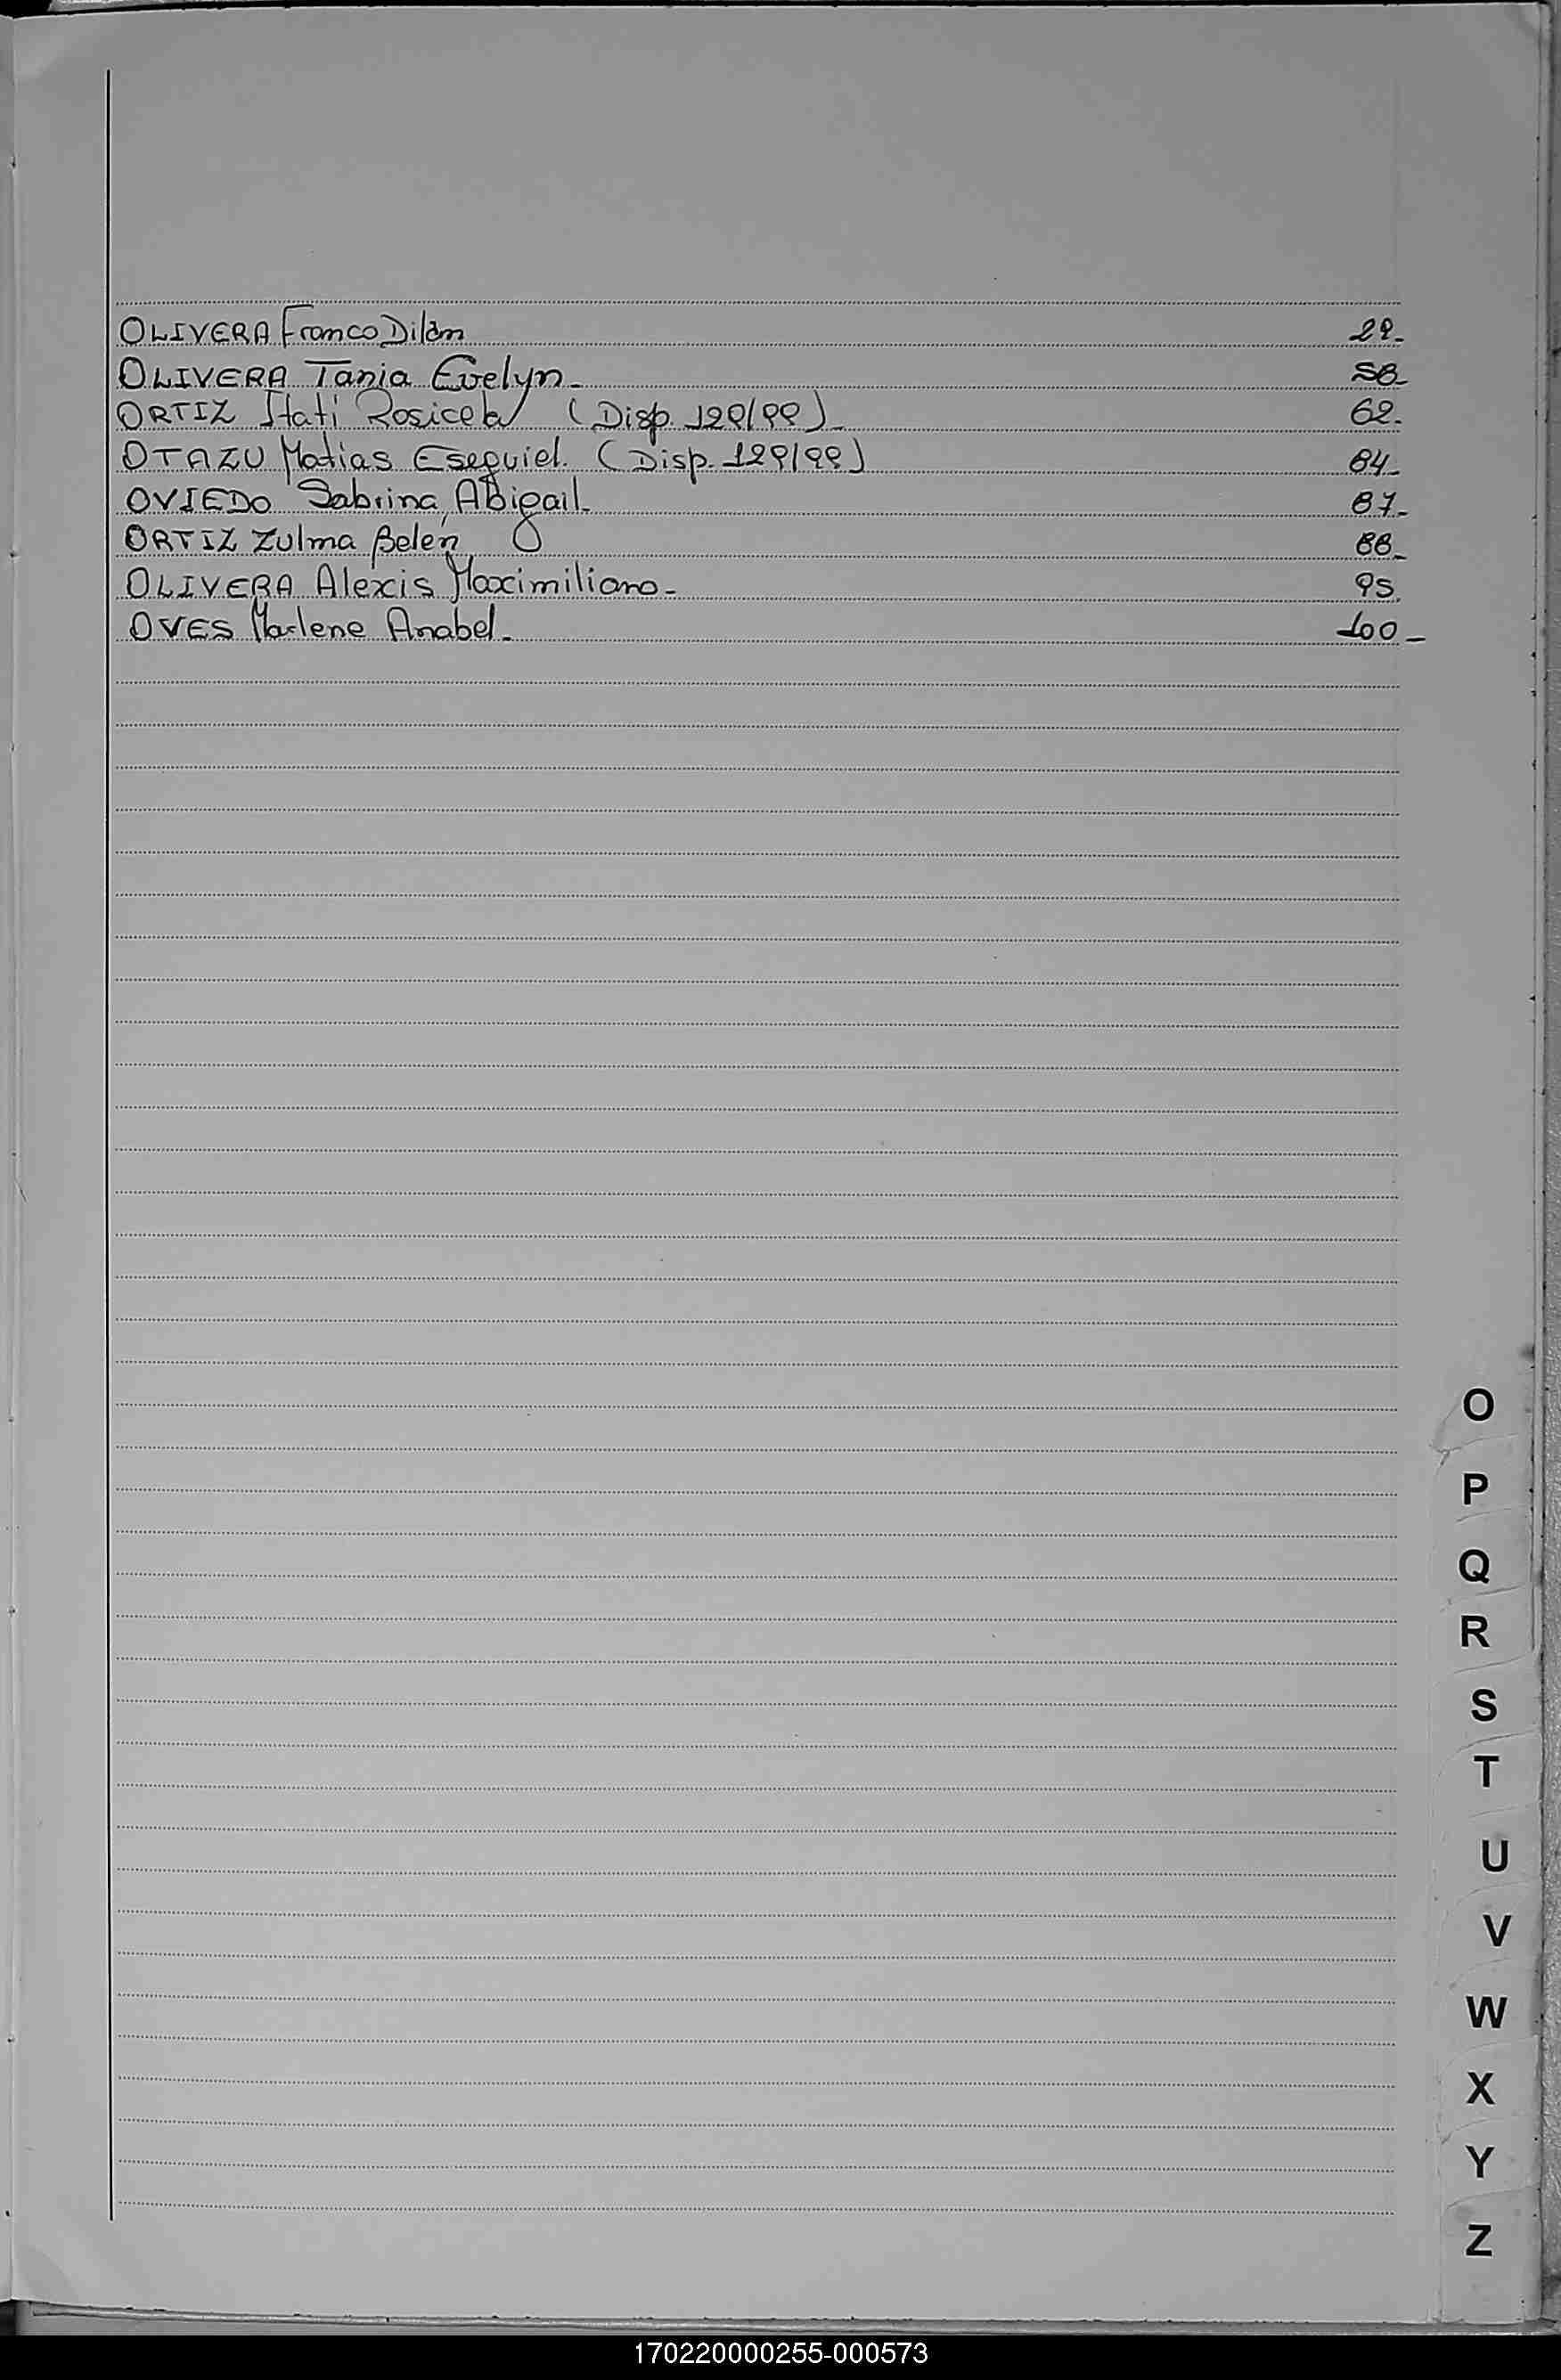 OLIVERA Franco Dilan 29-
OLIVERA Tania Evelyn- 58-
ORTIZ Itati Rosicela (Disp. 129/99)- 62-
OTAZU Matias Esequiel. (Disp. 129/99) 84-
OVIEDO Sabrina Abigail- 87-
ORTIZ Zulma Belén 88-
OLIVERA Alexis Maximiliano- 95.
OVES Marlene Anabel- 100-
O
P
Q
R
S
T
U
V
W
X
Y
Z
170220000255-000573